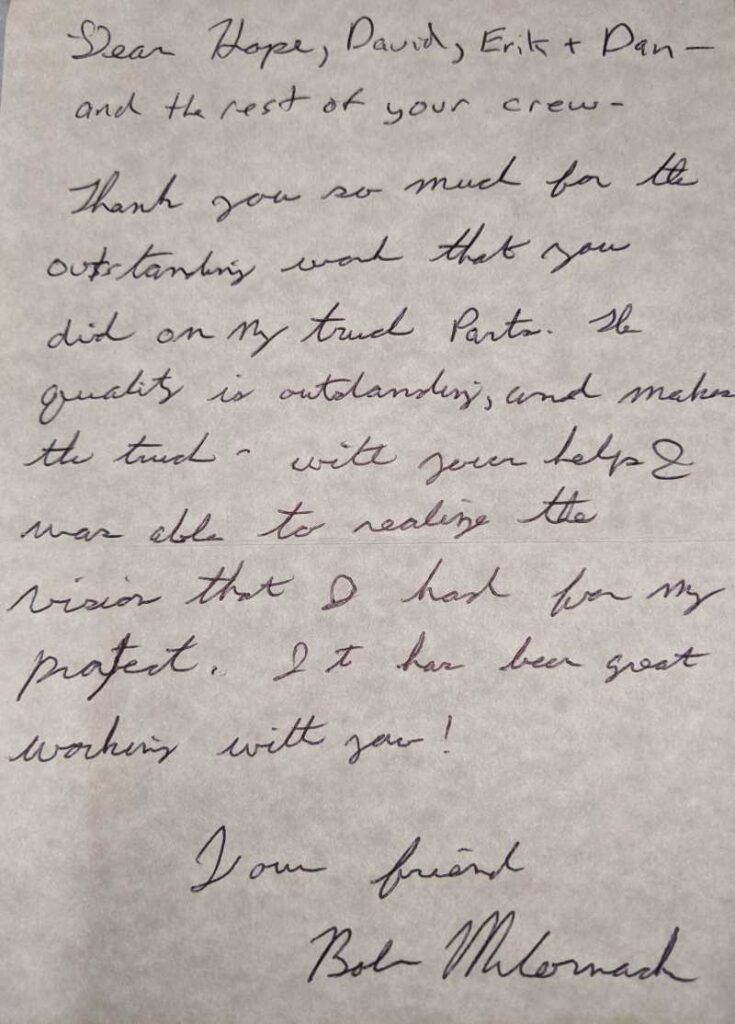 Dear Hope, David, Erik + Dan -
and the rest of your crew -
Thank you so much for the
outstanding work that you
did on my truck Parts. The
quality is outstanding, and makes
the truck - with your help I
was able to realize the
vision that I had for my
project. It has been great
working with you!
Your friend
Bob McCormack